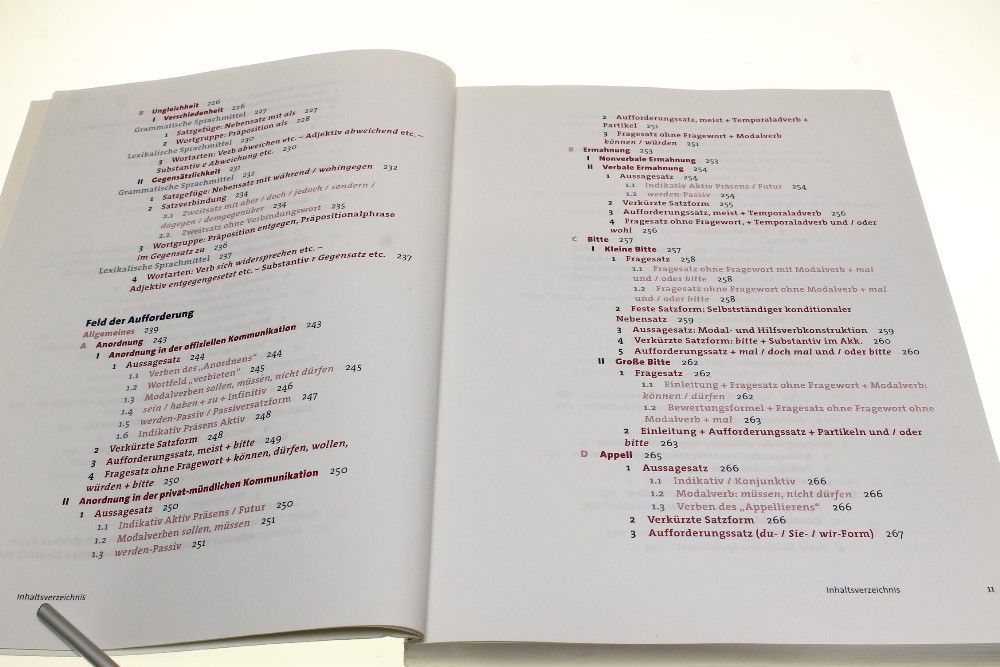 B Ungleichheit 226
I Verschiedenheit 226
Grammatische Sprachmittel 227
1 Satzgefüge: Nebensatz mit als 227
2 Wortgruppe: Präposition als 228
Lexikalische Sprachmittel 230
3 Wortarten: Verb abweichen etc. – Adjektiv abweichend etc. –
Substantiv e Abweichung etc. 230
II Gegensätzlichkeit 231
Grammatische Sprachmittel 232
1 Satzgefüge: Nebensatz mit während / wohingegen 232
2 Satzverbindung 234
2.1 Zweitsatz mit aber / doch / jedoch / sondern /
dagegen / demgegenüber 234
2.2. Zweitsatz ohne Verbindungswort 235
3 Wortgruppe: Präposition entgegen, Präpositionalphrase
im Gegensatz zu 236
Lexikalische Sprachmittel 237
4 Wortarten: Verb sich widersprechen etc. –
Adjektiv entgegengesetzt etc. – Substantiv r Gegensatz etc. 237
Feld der Aufforderung
Allgemeines 239
A Anordnung 243
I Anordnung in der offiziellen Kommunikation 243
1 Aussagesatz 244
1.1 Verben des „Anordnens“ 244
1.2 Wortfeld „verbieten“ 245
1.3 Modalverben sollen, müssen, nicht dürfen 245
1.4 sein / haben + zu + Infinitiv 246
1.5 werden-Passiv / Passiversatzform 247
1.6 Indikativ Präsens Aktiv 248
2 Verkürzte Satzform 248
3 Aufforderungssatz, meist + bitte 249
4 Fragesatz ohne Fragewort + können, dürfen, wollen,
würden + bitte 250
II Anordnung in der privat-mündlichen Kommunikation 250
1 Aussagesatz 250
1.1 Indikativ Aktiv Präsens / Futur 250
1.2 Modalverben sollen, müssen 251
1.3 werden-Passiv 251
Inhaltsverzeichnis
2 Aufforderungssatz, meist + Temporaladverb +
Partikel 251
3 Fragesatz ohne Fragewort + Modalverb
können / würden 251
B Ermahnung 253
I Nonverbale Ermahnung 253
II Verbale Ermahnung 254
1 Aussagesatz 254
1.1 Indikativ Aktiv Präsens / Futur 254
1.2 werden-Passiv 254
2 Verkürzte Satzform 255
3 Aufforderungssatz, meist + Temporaladverb 256
4 Fragesatz ohne Fragewort, + Temporaladverb und / oder
wohl 256
C Bitte 257
I Kleine Bitte 257
1 Fragesatz 258
1.1 Fragesatz ohne Fragewort mit Modalverb + mal
und / oder bitte 258
1.2 Fragesatz ohne Fragewort ohne Modalverb + mal
und / oder bitte 258
2 Feste Satzform: Selbstständiger konditionaler
Nebensatz 259
3 Aussagesatz: Modal- und Hilfsverbkonstruktion 259
4 Verkürzte Satzform: bitte + Substantiv im Akk. 260
5 Aufforderungssatz + mal / doch mal und / oder bitte 260
II Große Bitte 262
1 Fragesatz 262
1.1 Einleitung + Fragesatz ohne Fragewort + Modalverb:
können / dürfen 262
1.2 Bewertungsformel + Fragesatz ohne Fragewort ohne
Modalverb + mal 263
2 Einleitung + Aufforderungssatz + Partikeln und / oder
bitte 263
D Appell 265
1 Aussagesatz 266
1.1 Indikativ / Konjunktiv 266
1.2 Modalverb: müssen, nicht dürfen 266
1.3 Verben des „Appellierens“ 266
2 Verkürzte Satzform 266
3 Aufforderungssatz (du- / Sie- / wir-Form) 267
Inhaltsverzeichnis 11